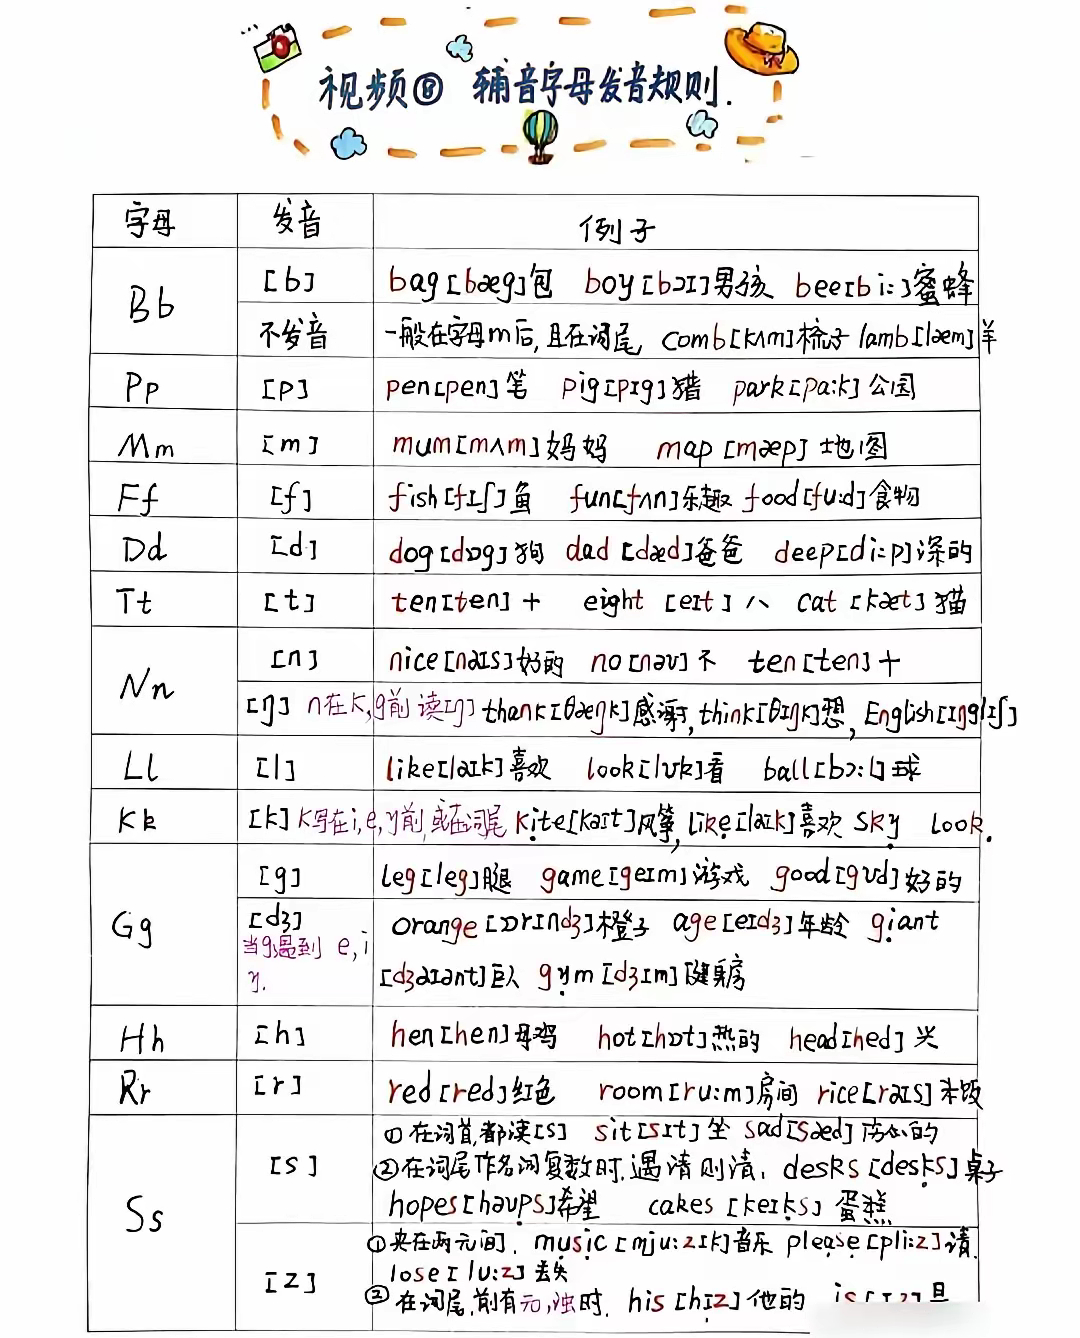 视频⑧ 辅音字母发音规则.
字母 发音 例子
Bb [b] bag[bæg]包 boy[bɔɪ]男孩 bee[bi:]蜜蜂
不发音 一般在字母m后,且在词尾 comb[kʌm]梳子 lamb[læm]羊
Pp [p] pen[pen]笔 pig[pɪg]猎 park[pa:k]公园
Mm [m] mum[mʌm]妈妈 map[mæp]地图
Ff [f] fish[fɪʃ]鱼 fun[fʌn]乐趣 food[fu:d]食物
Dd [d] dog[dɒg]狗 dad[dæd]爸爸 deep[di:p]深的
Tt [t] ten[ten]十 eight[eɪt]八 cat[kæt]猫
Nn [n] nice[naɪs]好的 no[nəʊ]不 ten[ten]十
[ŋ] n在k,g前读[ŋ] thank[θæŋk]感谢,think[θɪŋk]想,English[ɪŋglɪʃ]
Ll [l] like[laɪk]喜欢 look[lʊk]看 ball[bɔ:l]球
Kk [k] k写在i,e,y前,或在词尾 kite[kaɪt]风筝,like[laɪk]喜欢 sky look.
Gg [g] leg[leg]腿 game[geɪm]游戏 good[gʊd]好的
[dʒ] orange[ɒrɪndʒ]橙子 age[eɪdʒ]年龄 giant
当g遇到 e,i
y. [dʒaɪənt]巨人 gym[dʒɪm]健身房
Hh [h] hen[hen]母鸡 hot[hɒt]热的 head[hed]头
Rr [r] red[red]红色 room[ru:m]房间 rice[raɪs]米饭
Ss [s] ①在词首,都读[s] sit[sɪt]坐 sad[sæd]伤心的
②在词尾作名词复数时,遇清则清, desks[desks]桌子
hopes[həʊps]希望 cakes[keɪks]蛋糕
[z] ①夹在两元间, music[mju:zɪk]音乐 please[pli:z]请,
lose[lu:z]丢失
②在词尾,前有元,浊时, his[hɪz]他的 is[ɪz]是